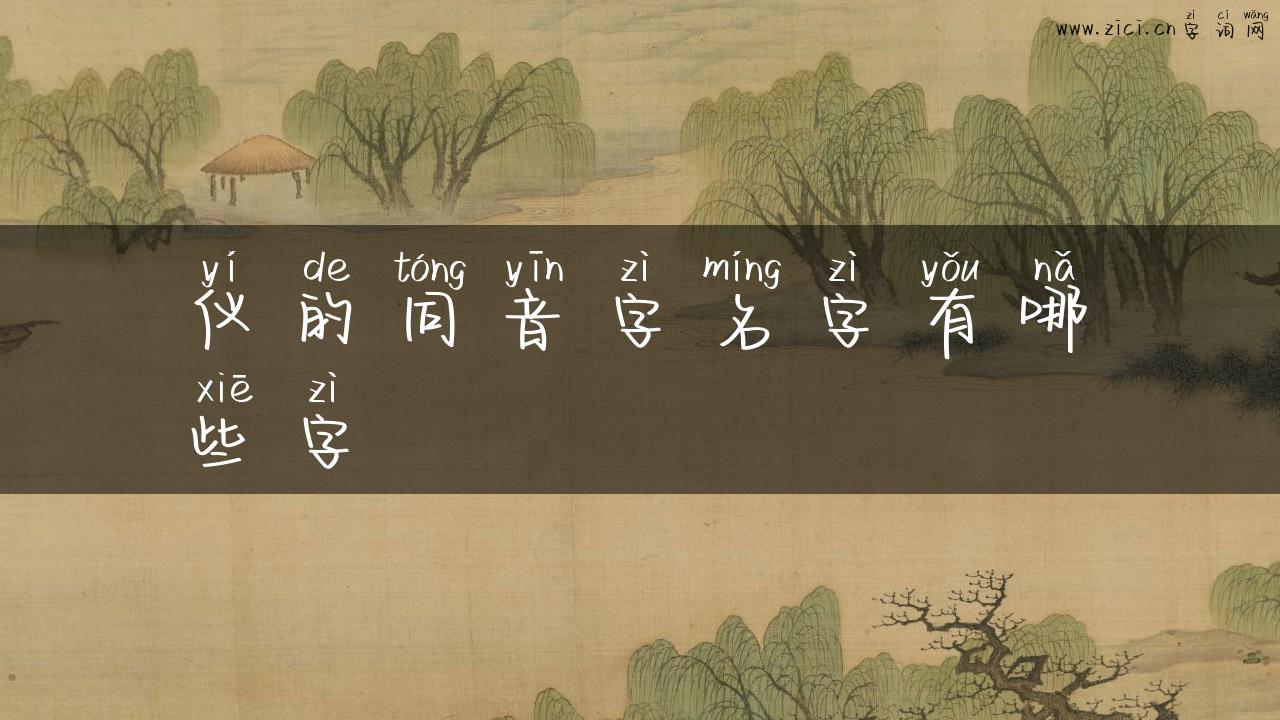 zì cí wǎng
www.zici.cn字词网
yí de tóng yīn zì míng zì yǒu nǎ
仪的同音字名字有哪
xiē zì
些字